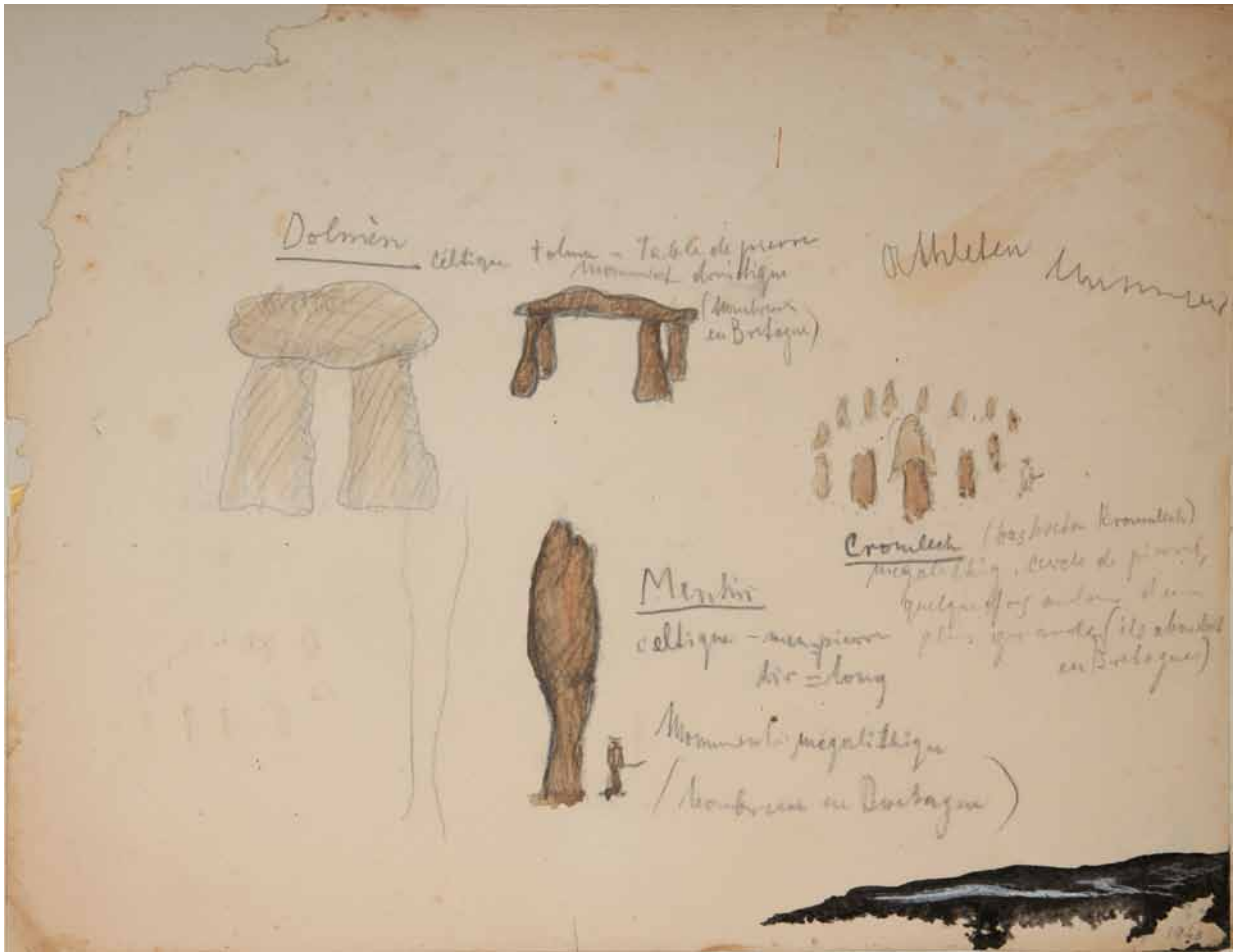 Dolmèn
céltique tolmen = Table de pierre
Monument druidique
(Nombreux
en Bretagne)
Athleten
Cromlech (bas breton Kroumlech)
mégalithiq. cercle de pierres,
quelquefois autour d'une
plus grande (ils abondent
en Bretagne)
Menhir
celtique - men=pierre
hir = long
Monument mégalithique
(Nombreux en Bretagne)